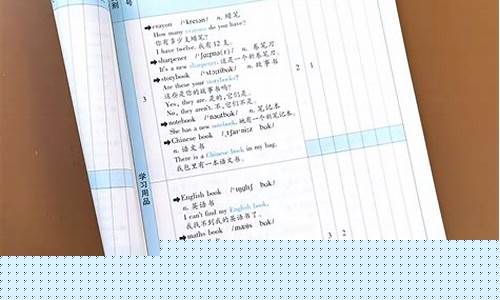 别
号
➡crayon /ˈkreɪən/ n. 蜡笔
How many crayons do you have?
你有多少支蜡笔?
I have twelve. 我有12支。
➡sharpener /ˈʃɑːpnə(r)/ n. 卷笔刀
It's a new sharpener. 这是一个新卷笔刀。
➡storybook /ˈstɔːribʊk/ n. 故事书
Are these your storybooks?
这些是你的故事书吗?
Yes, they are. 是的,它们是。
No, they aren't. 不,它们不是。
3
2 1
➡notebook /ˈnəʊtbʊk/ n. 笔记本
She has a new notebook. 她有一个新笔记本。
➡Chinese book /ˌtʃaɪˈniːz bʊk/
n. 语文书
There is a Chinese book in my bag.
我包里有一本语文书。
学习用品
➡English book /ˈɪŋɡlɪʃ bʊk/
n. 英语书
I can't find my English book.
我找不到我的英语书了。
➡maths book /mæθs bʊk/
3 2